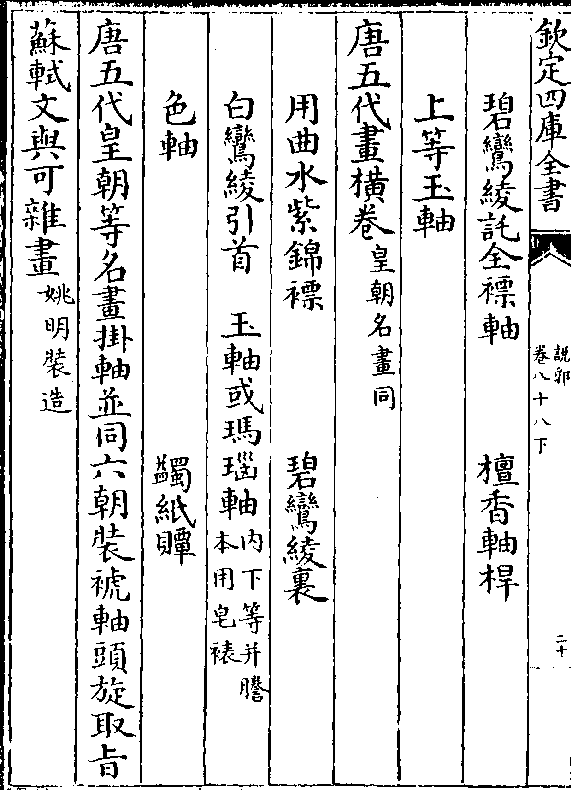 欽定四庫全書
說郛
卷八十八下
二十
碧鸞綾託全褾軸　檀香軸桿
上等玉軸
唐五代畫橫卷皇朝名畫同
用曲水紫錦褾　碧鸞綾裏
白鸞綾引首　玉軸或瑪瑙軸内下等并謄本用皂裱
色軸　蠲紙贉
唐五代皇朝等名畫掛軸並同六朝裝褫軸頭旋取旨
蘇軾文與可雜畫姚明裝造